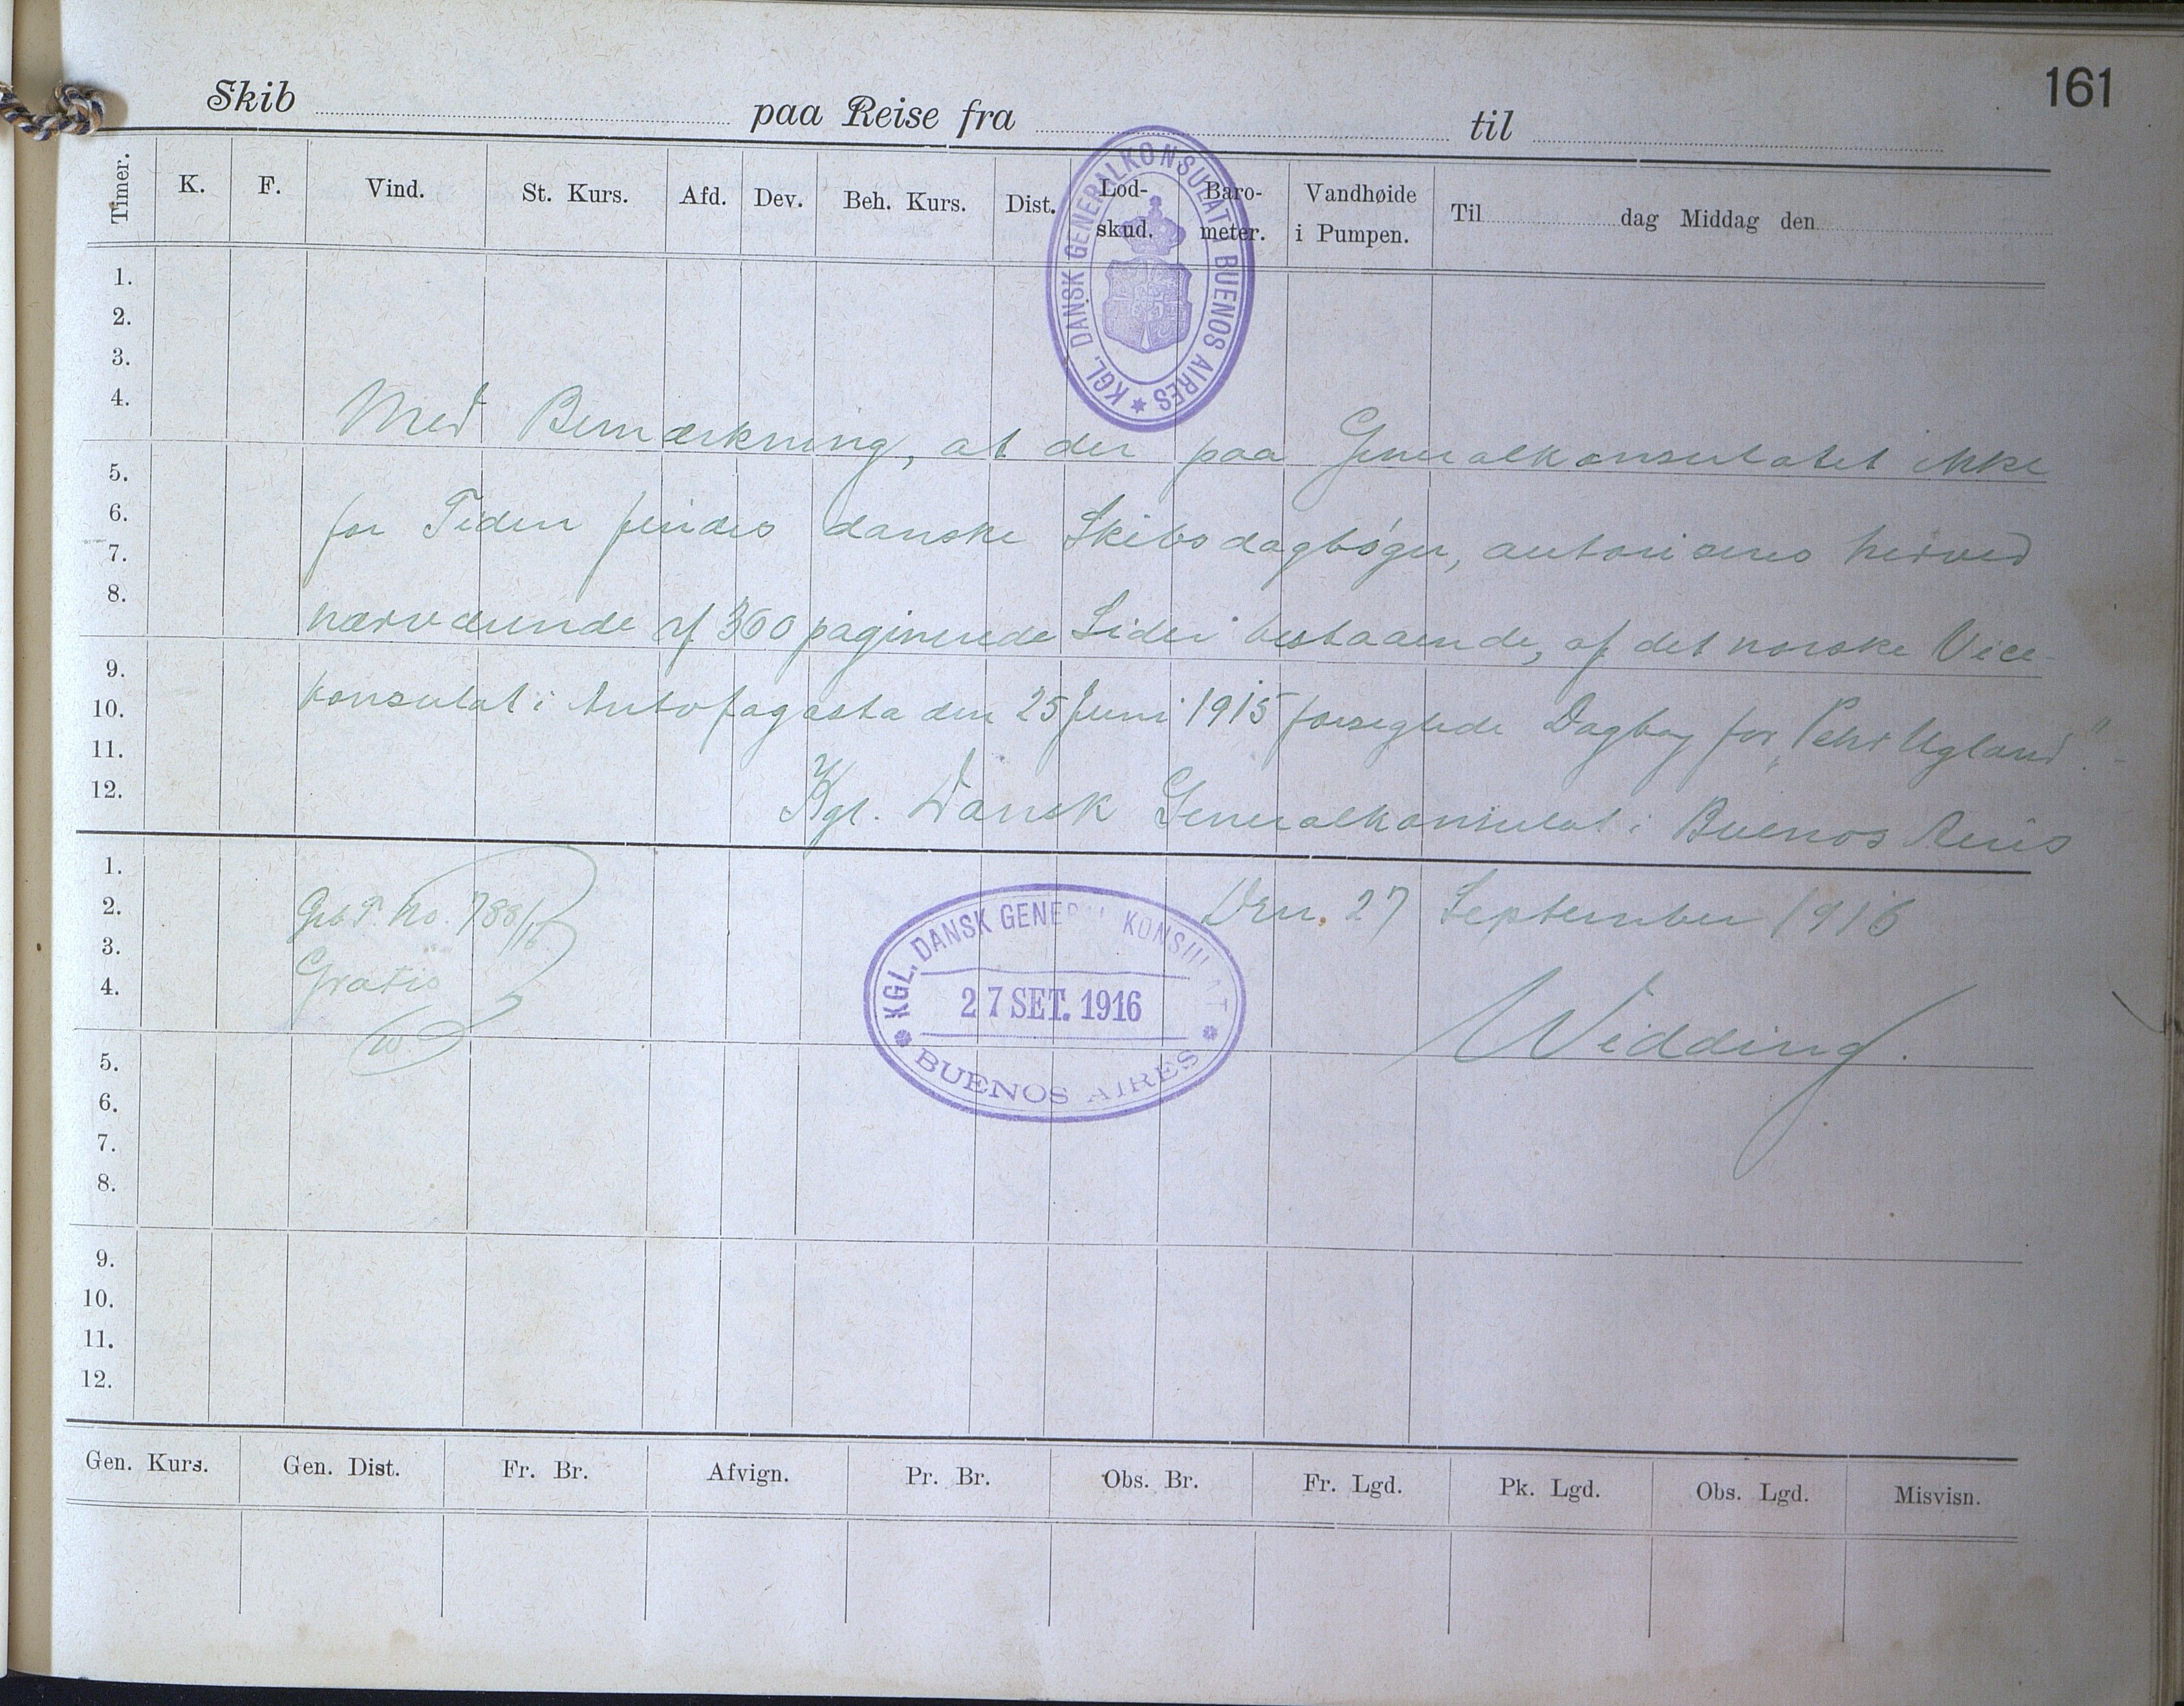 161
Skib paa Reise fra til
Timer. K. F. Vind. St. Kurs. Afd. Dev. Beh. Kurs. Dist. Lod-skud. Baro-meter. Vandhøide i Pumpen. Til dag Middag den
KGL. DANSK GENERALKONSULAT I BUENOS AIRES
1.
2.
3.
4.
Med Bemærkning, at der paa Generalkonsulatet ikke
5.
6.
for Tiden findes danske Skibsdagbøger, autoriseres herved
7.
8.
nærværende af 360 paginerede Sider bestaaende, af det norske Vice-
9.
10.
konsulat i Antofagasta den 25 Juni 1915 forseglede Dagbog for „Pehr Ugland".-
11.
12.
Kgl. Dansk Generalkonsulat i Buenos Aires
1.
2.
Den. 27 September 1916
No. 788/16
3.
Gratis
4.
Widding.
W.
KGL. DANSK GENERAL KONSULAT
27 SET. 1916
BUENOS AIRES
5.
6.
7.
8.
9.
10.
11.
12.
Gen. Kurs. Gen. Dist. Fr. Br. Afvign. Pr. Br. Obs. Br. Fr. Lgd. Pk. Lgd. Obs. Lgd. Misvisn.